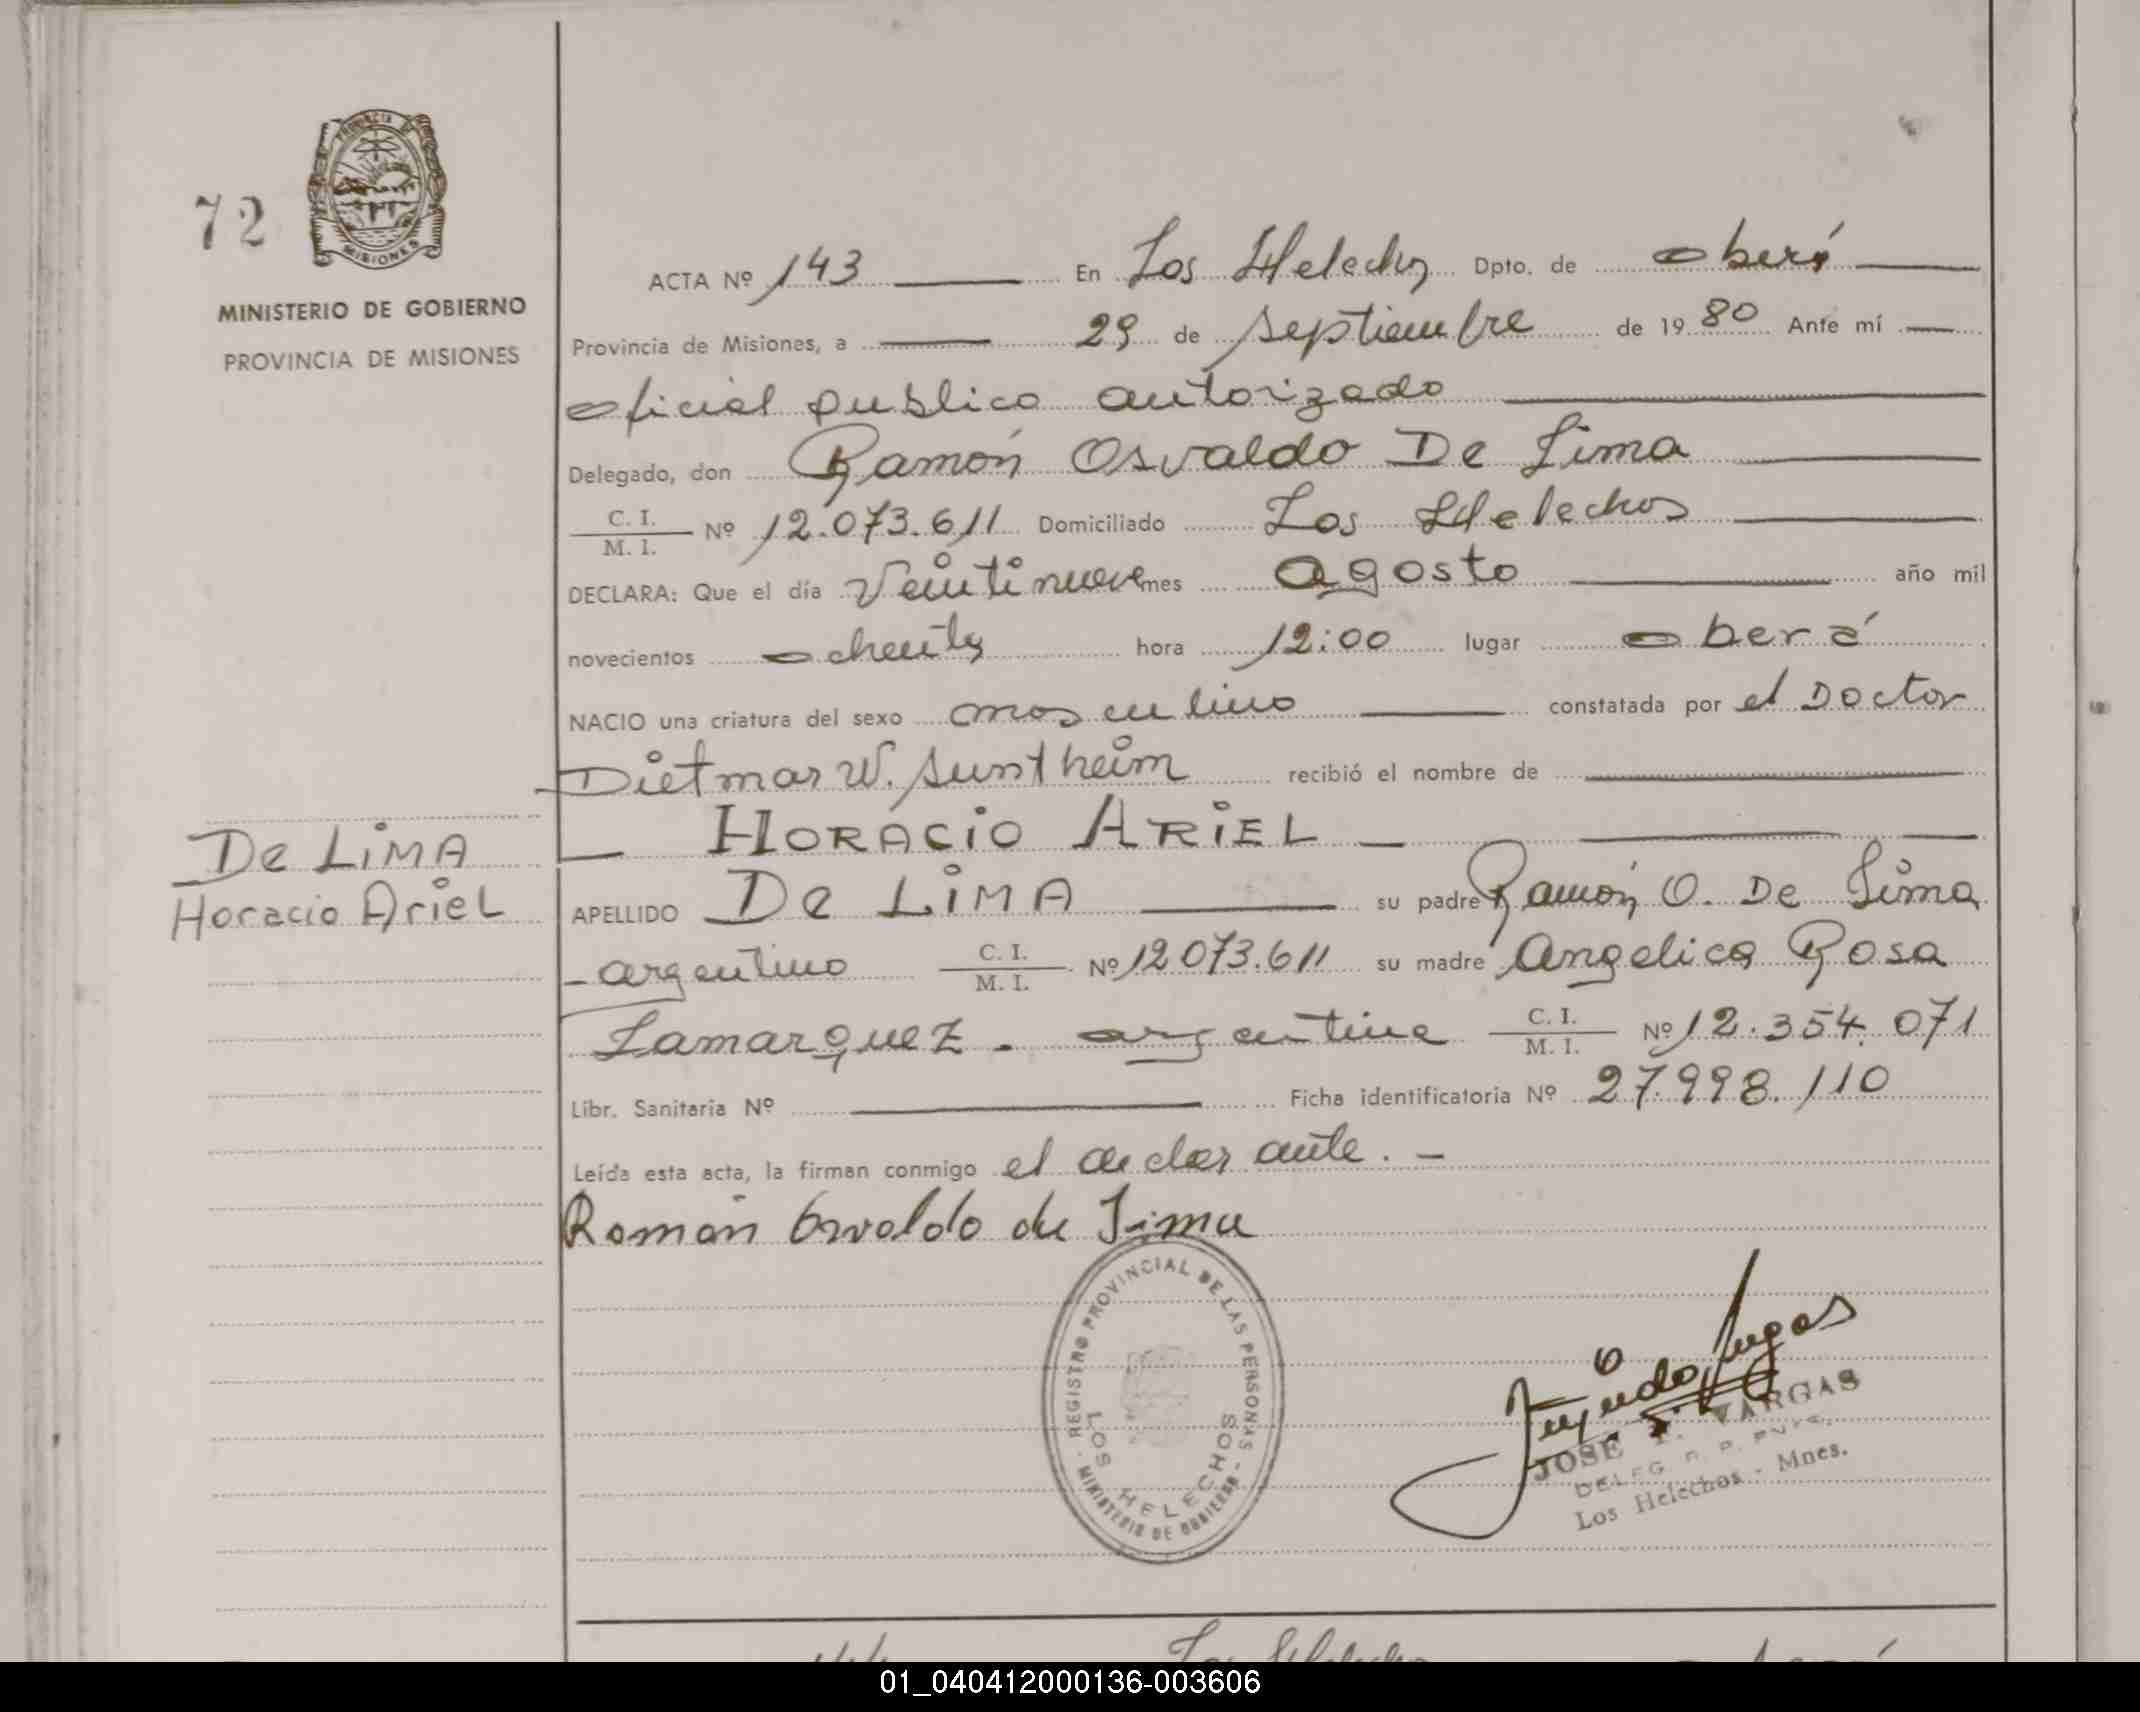 72
PROVINCIA DE
MISIONES
MINISTERIO DE GOBIERNO
PROVINCIA DE MISIONES
ACTA Nº 143 En Los Helechos Dpto. de oberá
Provincia de Misiones, a 29 de septiembre de 1980 Ante mí
oficial publico autorizado
Delegado, don Ramón Osvaldo De Lima
C. I.
M. I. Nº 12.073.611 Domiciliado Los Helechos
DECLARA: Que el día veintinueve mes agosto año mil
novecientos ochenta hora 12:00 lugar oberá
NACIO una criatura del sexo masculino constatada por el Doctor
Dietmar W. Suntheim recibió el nombre de
HORACIO ARIEL
De LIMA
Horacio Ariel
APELLIDO De LIMA su padre Ramón O. De Lima
argentino C. I.
M. I. Nº 12073.611 su madre Angelica Rosa
Lamarquez - argentina C. I.
M. I. Nº 12.354.071
Libr. Sanitaria Nº Ficha identificatoria Nº 27.998.110
Leída esta acta, la firman conmigo el declarante. -
Ramón Osvaldo de Lima
REGISTRO PROVINCIAL DE LAS PERSONAS
LOS HELECHOS
- MINISTERIO DE GOBIERNO -
JOSE T. VARGAS
DELEG. R. P.
Los Helechos - Mnes.
Los Helechos
01_040412000136-003606